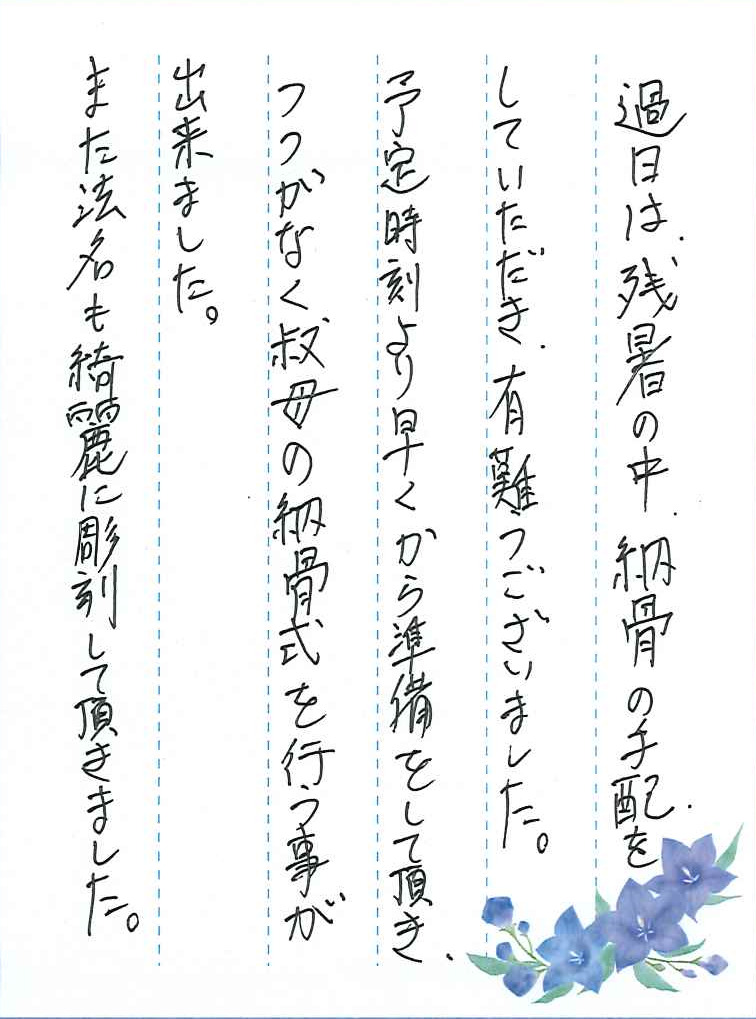 過日は、残暑の中、納骨の手配を
していただき、有難うございました。
予定時刻より早くから準備をして頂き、
つつがなく叔母の納骨式を行う事が
出来ました。
また法名も綺麗に彫刻して頂きました。